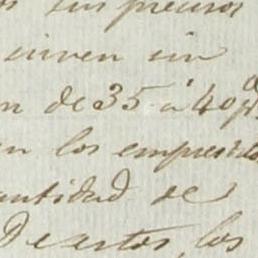 sus precios
sirven sin
n de 35 á 40 p
n los empréstito
antidad de
De estos, los